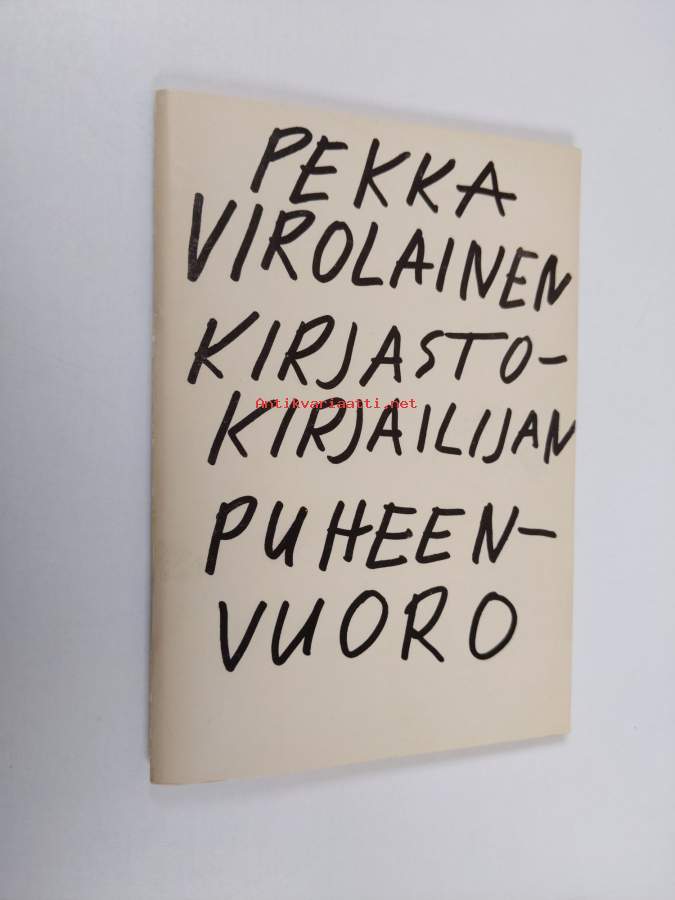 PEKKA
VIROLAINEN
KIRJASTO-
Antikvariaatti.net
KIRJAILIJAN
PUHEEN-
VUORO